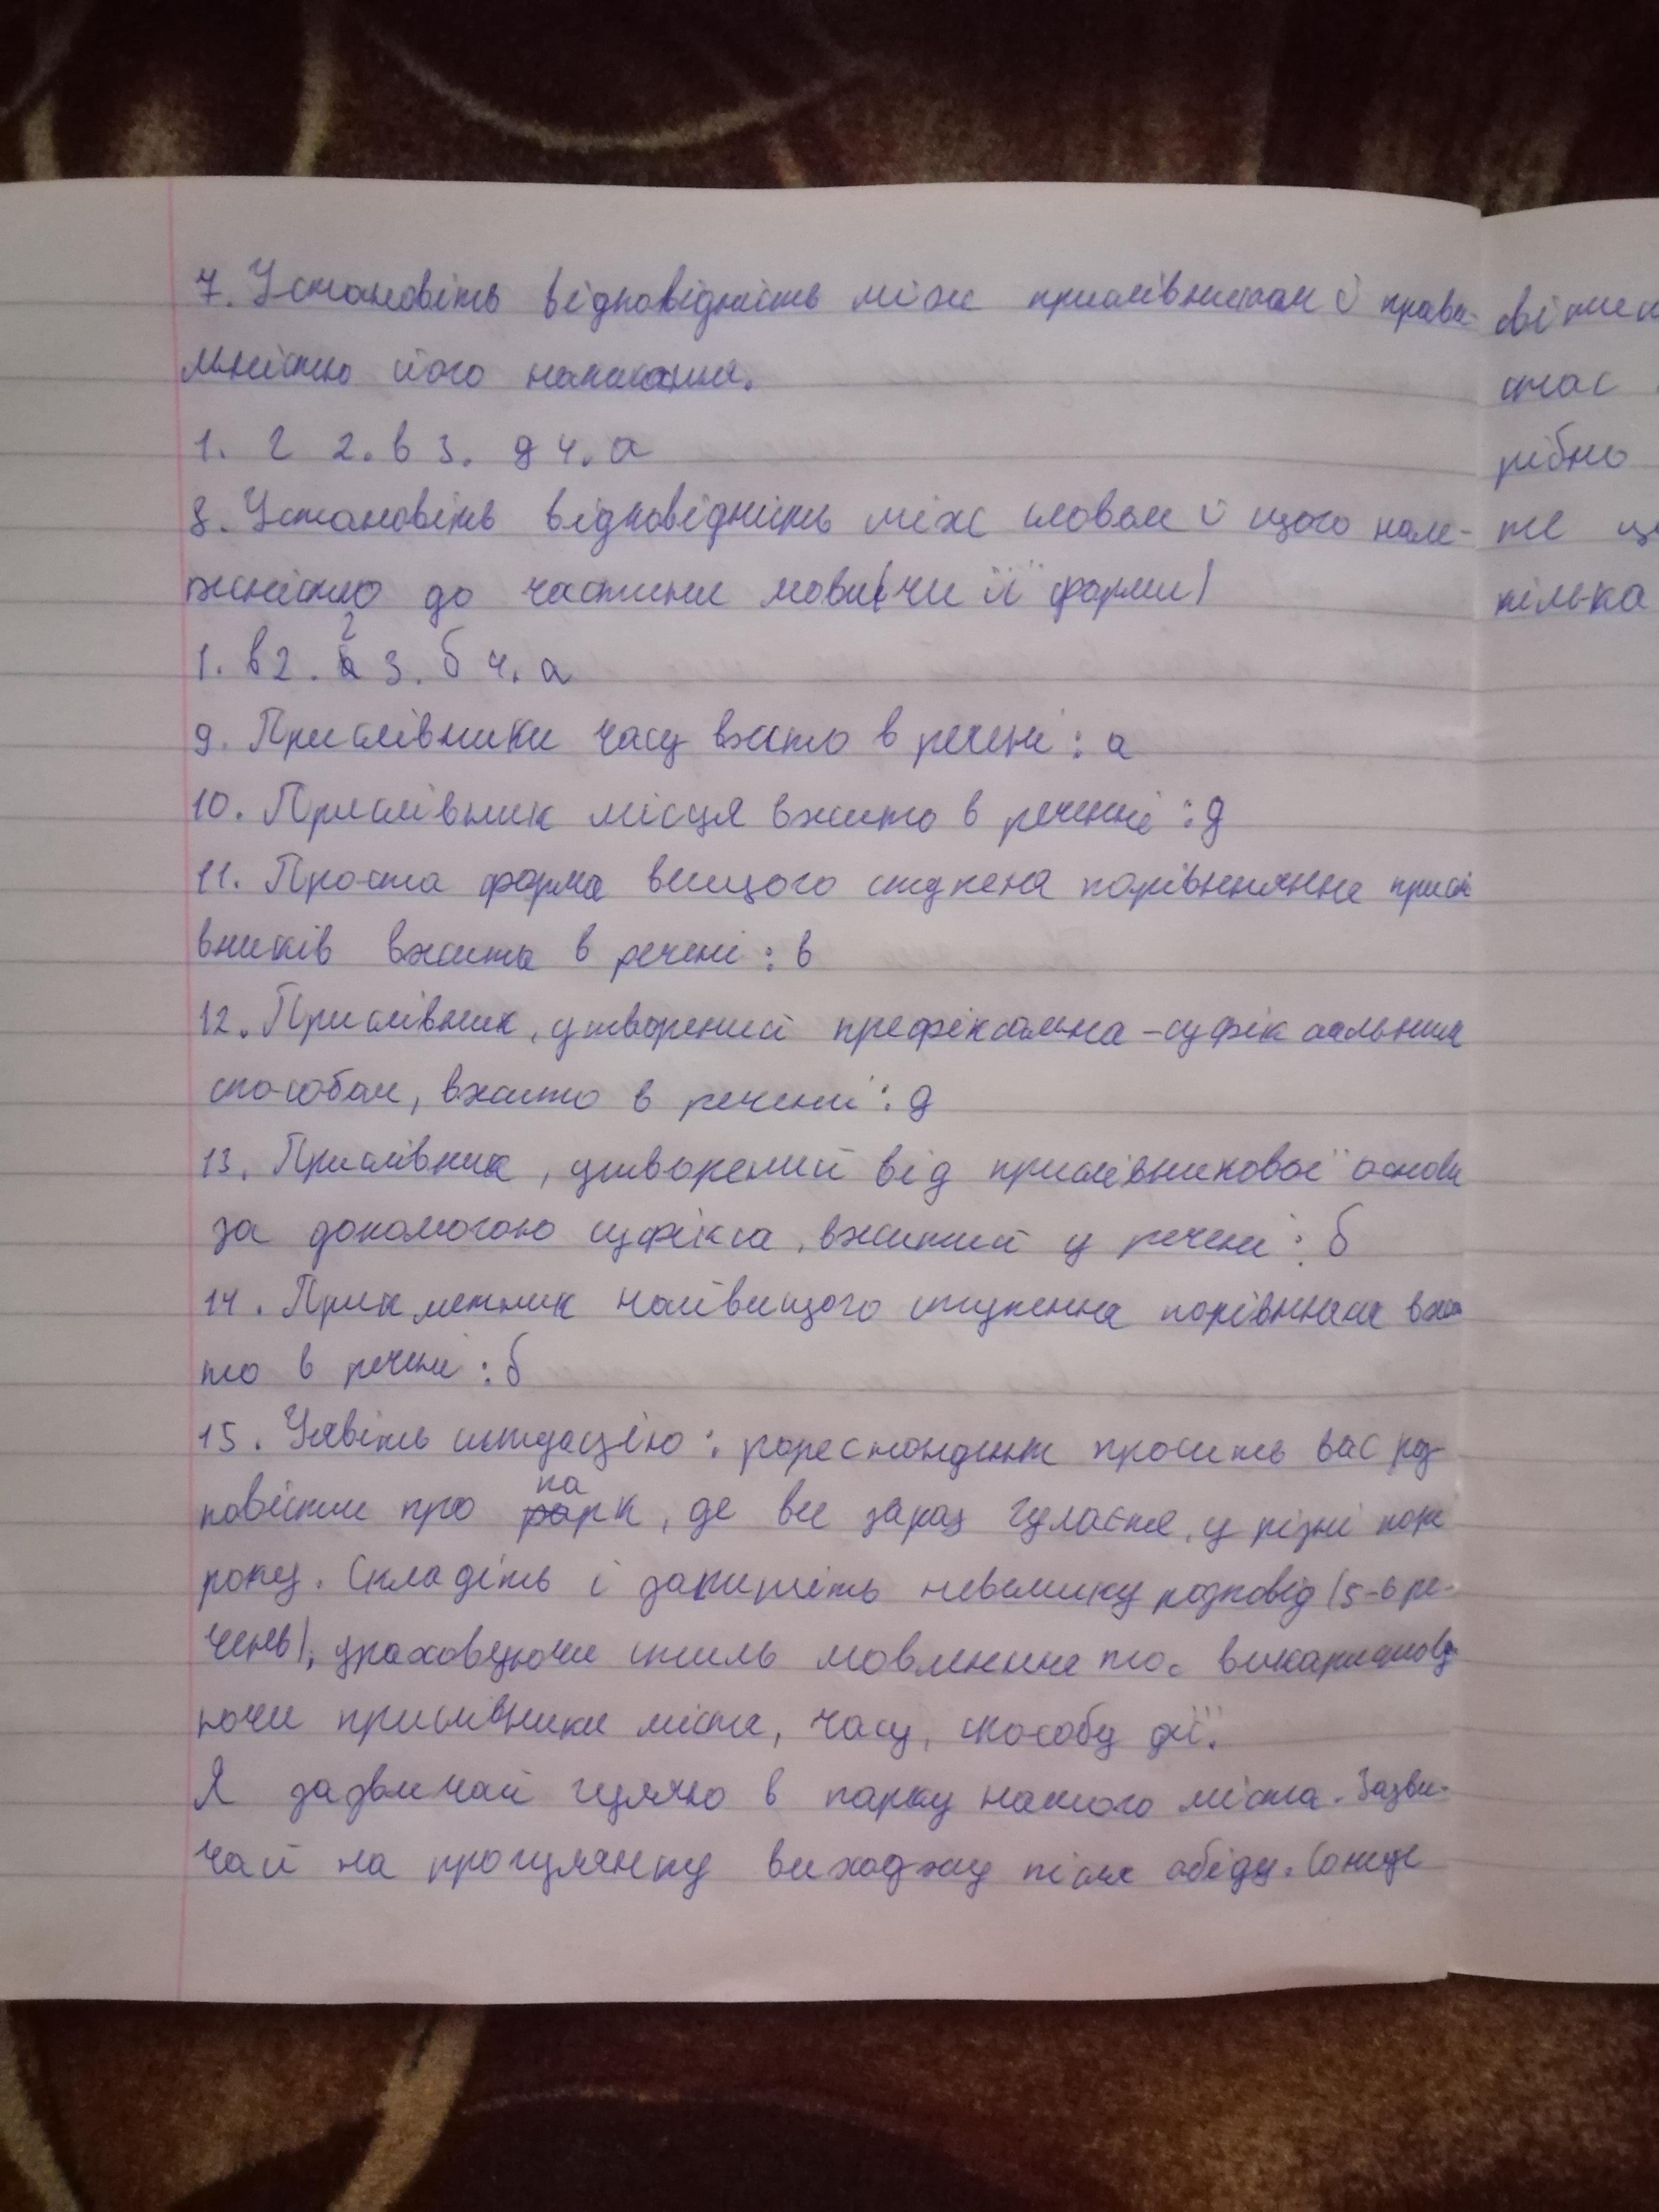 7. Установіть відповідність між прислівником і прави-
льністю його написання.
1. г 2. в 3. д 4. а
8. Установіть відповідність між словом і щого нале-
жністю до частини мови(чи її форми)
1. в 2. г 3. б 4. а
9. Прислівники часу вжито в речені : а
10. Прислівник місця вжито в реченні : д
11. Проста форма вищого ступеня порівнянна прислі
вників вжита в речені : в
12. Прислівник, утворений префіксально-суфіксальним
способом, вжито в речені : д
13. Прислівник, утворений від прислівникової основи
за допомогою суфікса, вжитий у речені : б
14. Прикметник найвищого ступення порівняня вжи
то в речені : б
15. Уявіть ситуацію : кореспондент просить вас роз-
повісти про парк, де ви зараз гуляєте, у різні пори
року. Складіть і запишіть невелику розповід (5-6 ре-
чень), ураховуючи стиль мовлення та використову
ючи прислівники місте, часу, способу дії.
Я зазвичай гуляю в парку нашого міста. Зазви-
чай на прогулянку виходжу після обіду. Сонце
вітит
стає
рібно
те
тілька